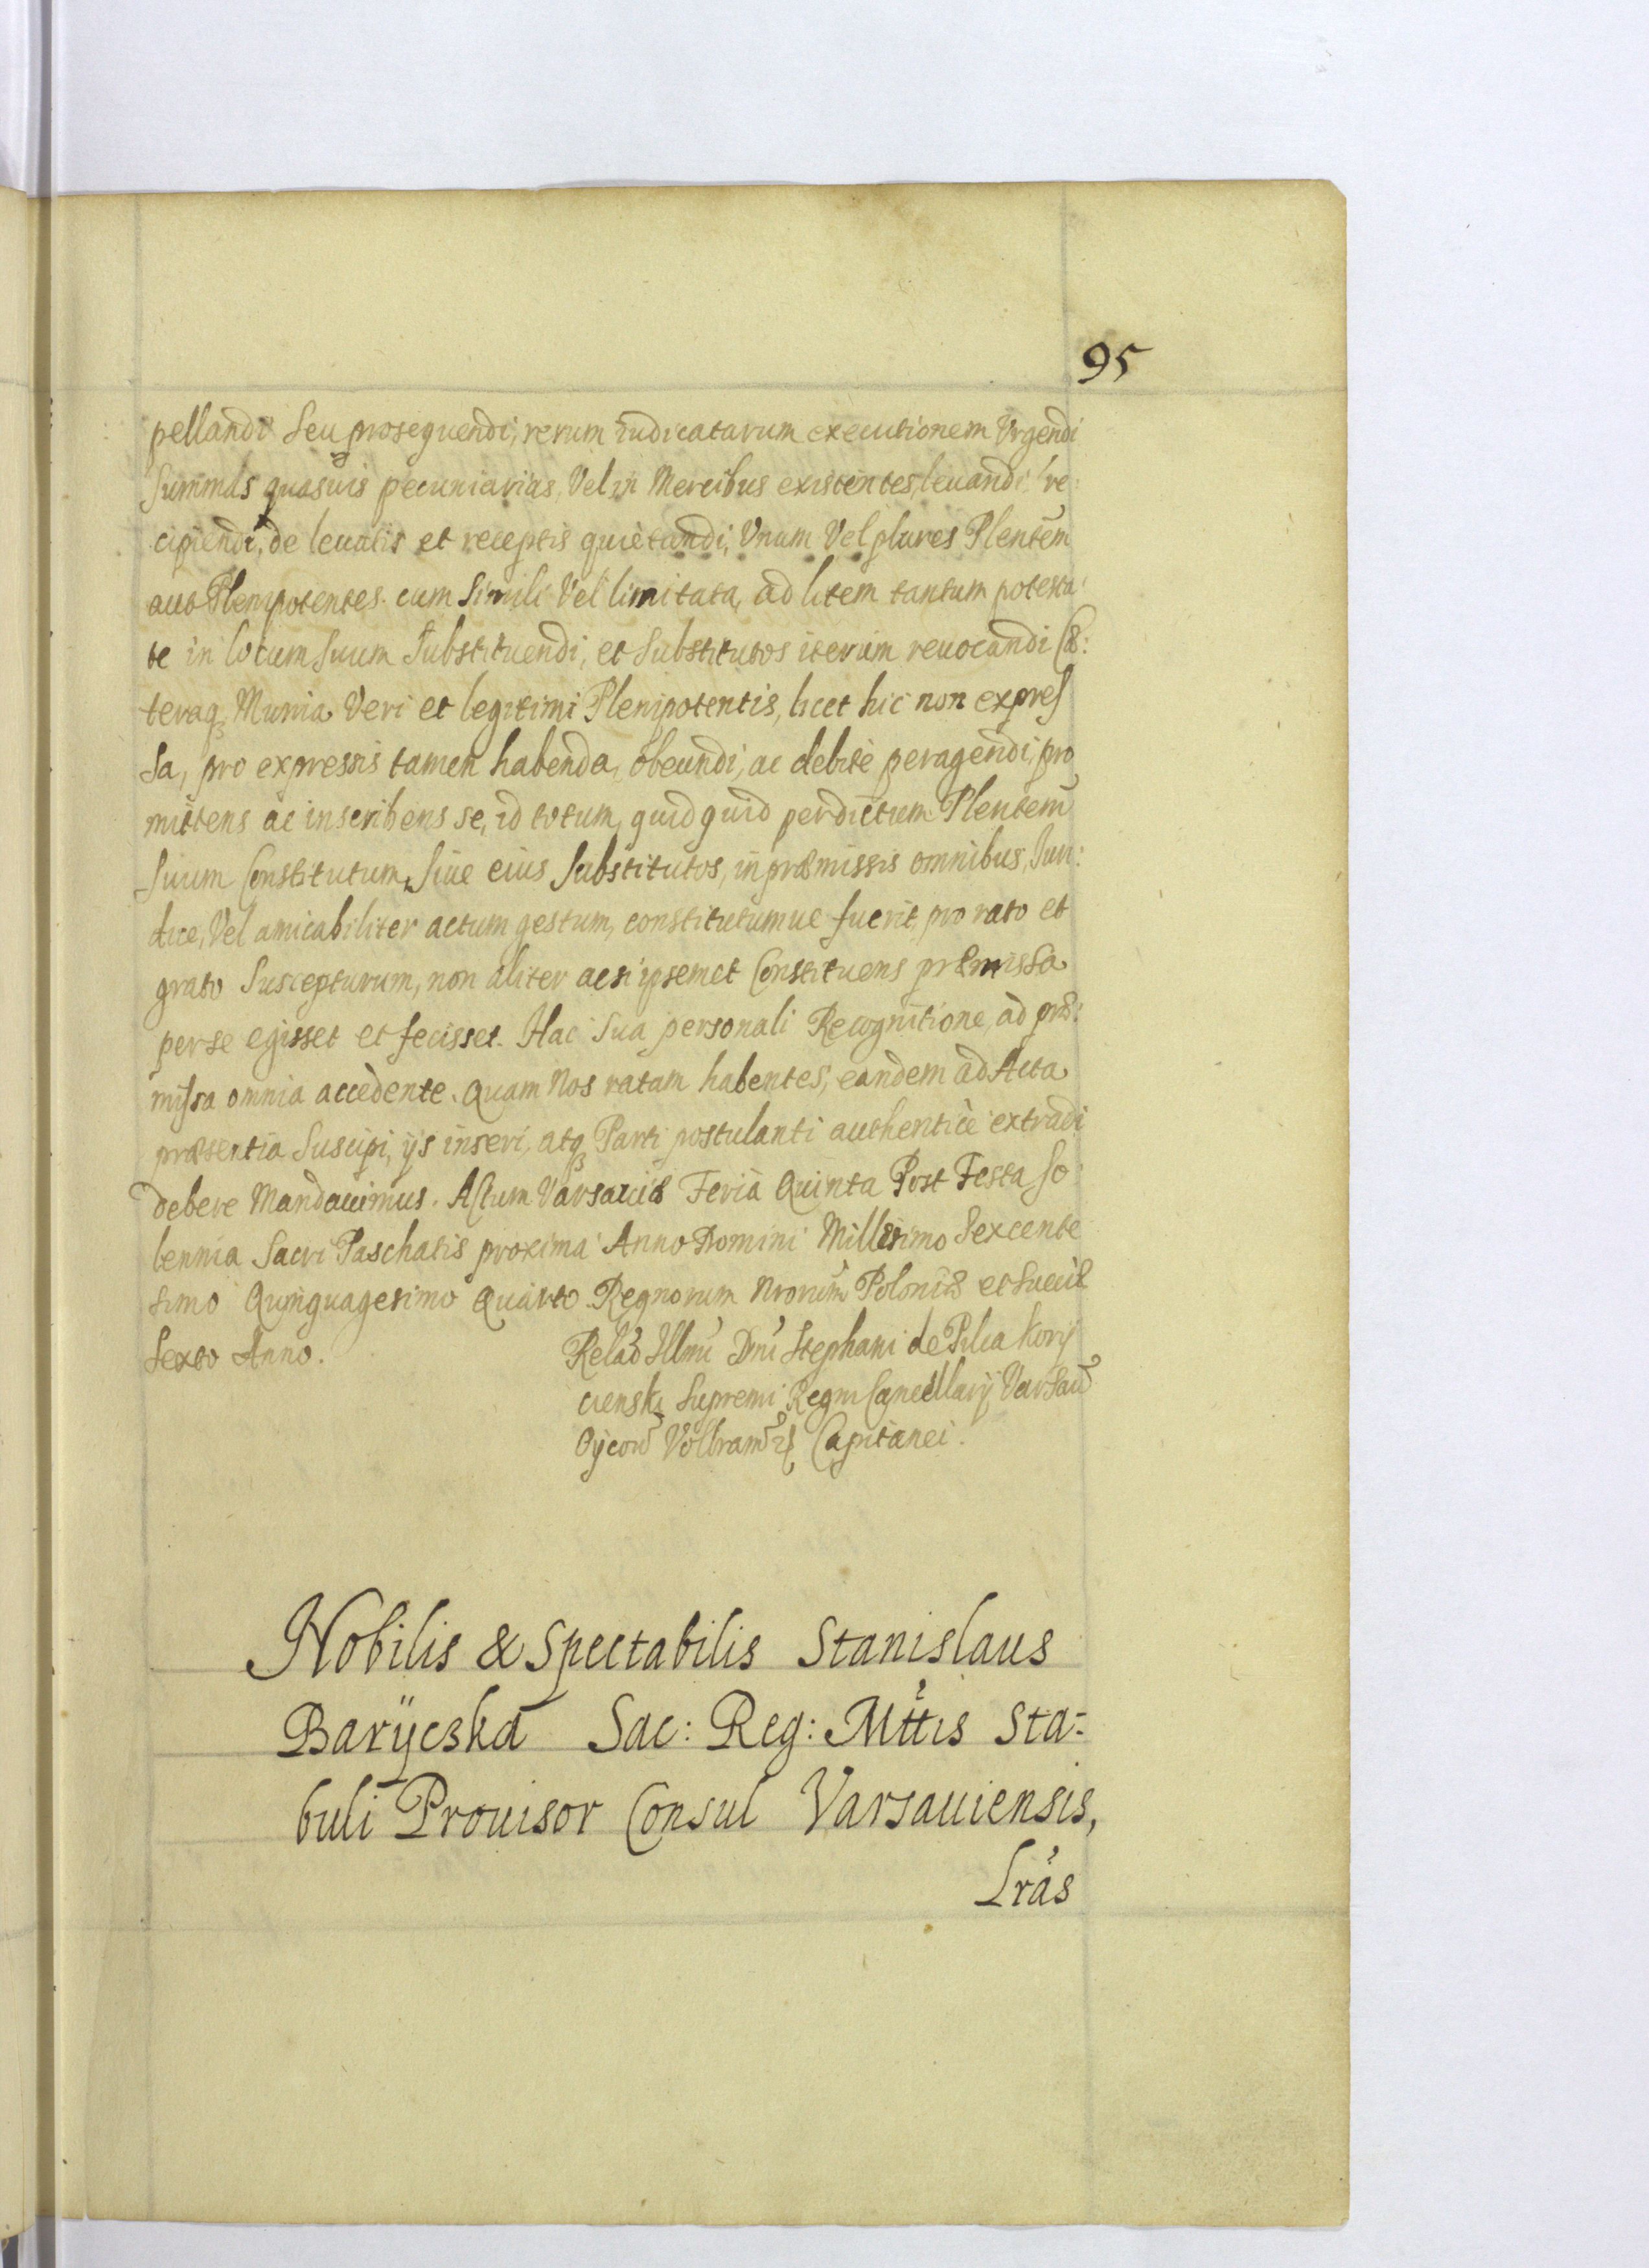 95
pellandi seu prosequendi, rerum iudicatarum executionem Vrgendi
Summas quasuis pecuniarias, Vel in Mercibus existentes, leuandi, re:
cipiendi, de leuatis et receptis quietandi, Vnum Vel plures Plentem̃
aut Plenipotentes cum simili Vel limitata, ad litem tantum potesta:
te in locum suum substituendi, et substitutos iterum reuocandi Cæ:
teraq₃ Munia Veri et legitimi Plenipotentis, licet hic non expres
sa, pro expressis tamen habenda, obeundi, ac debite peragendi, pro
mittens ac inscribens se, id totum, quidquid per dictum Plentem̃
suum Constitutum, siue eius substitutos, in præmissis omnibus, Iuri:
dice, Vel amicabiliter actum gestum, constitutumue fuerit, pro rato et
grato suscepturum, non aliter ac si ipsemet Constituens præmissa
per se egisset et fecisset. Hac sua personali Recognitione, ad præ:
missa omnia accedente. Quam Nos ratam habentes, eandem ad Acta
præsentia suscipi, ijs inseri, atq₃ Parti postulanti authentice extradi
debere Mandauimus. Actum Varsauiæ Feria Quinta Post Festa so:
lennia Sacri Paschatis proxima Anno Domini Millesimo Sexcente
simo Quinquagesimo Quarto. Regnorum Nrorum̃ Poloniæ et Sueciæ
Sexto Anno.
Relaõ Illmi Dni Stephani de Pilca Kory
cienski Supremi Regni Cancellarij, Varsau̅
Oycou̅ Volbram̅ Capitanei.
Nobilis & Spectabilis Stanislaus
Barÿcska Sac: Reg: Mttis Sta-
buli Prouisor Consul Varsauiensis,
Lrãs